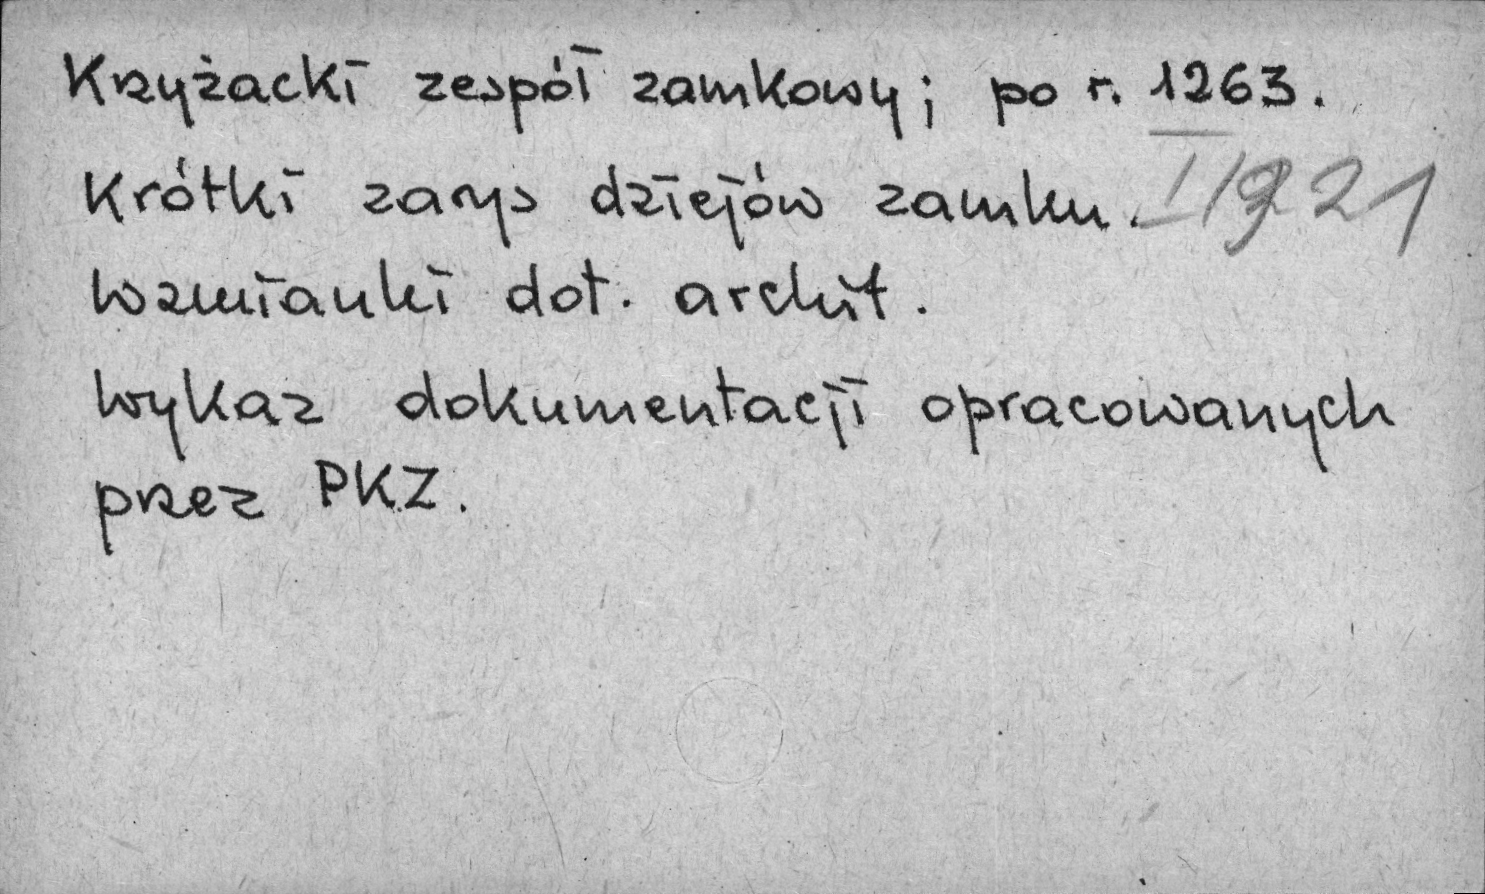 Krzyżacki zespół zamkowy; po r. 1263.
Krótki zarys dziejów zamku.
Wzmianki dot. archit.
Wykaz dokumentacji opracowanych
przez PKZ.